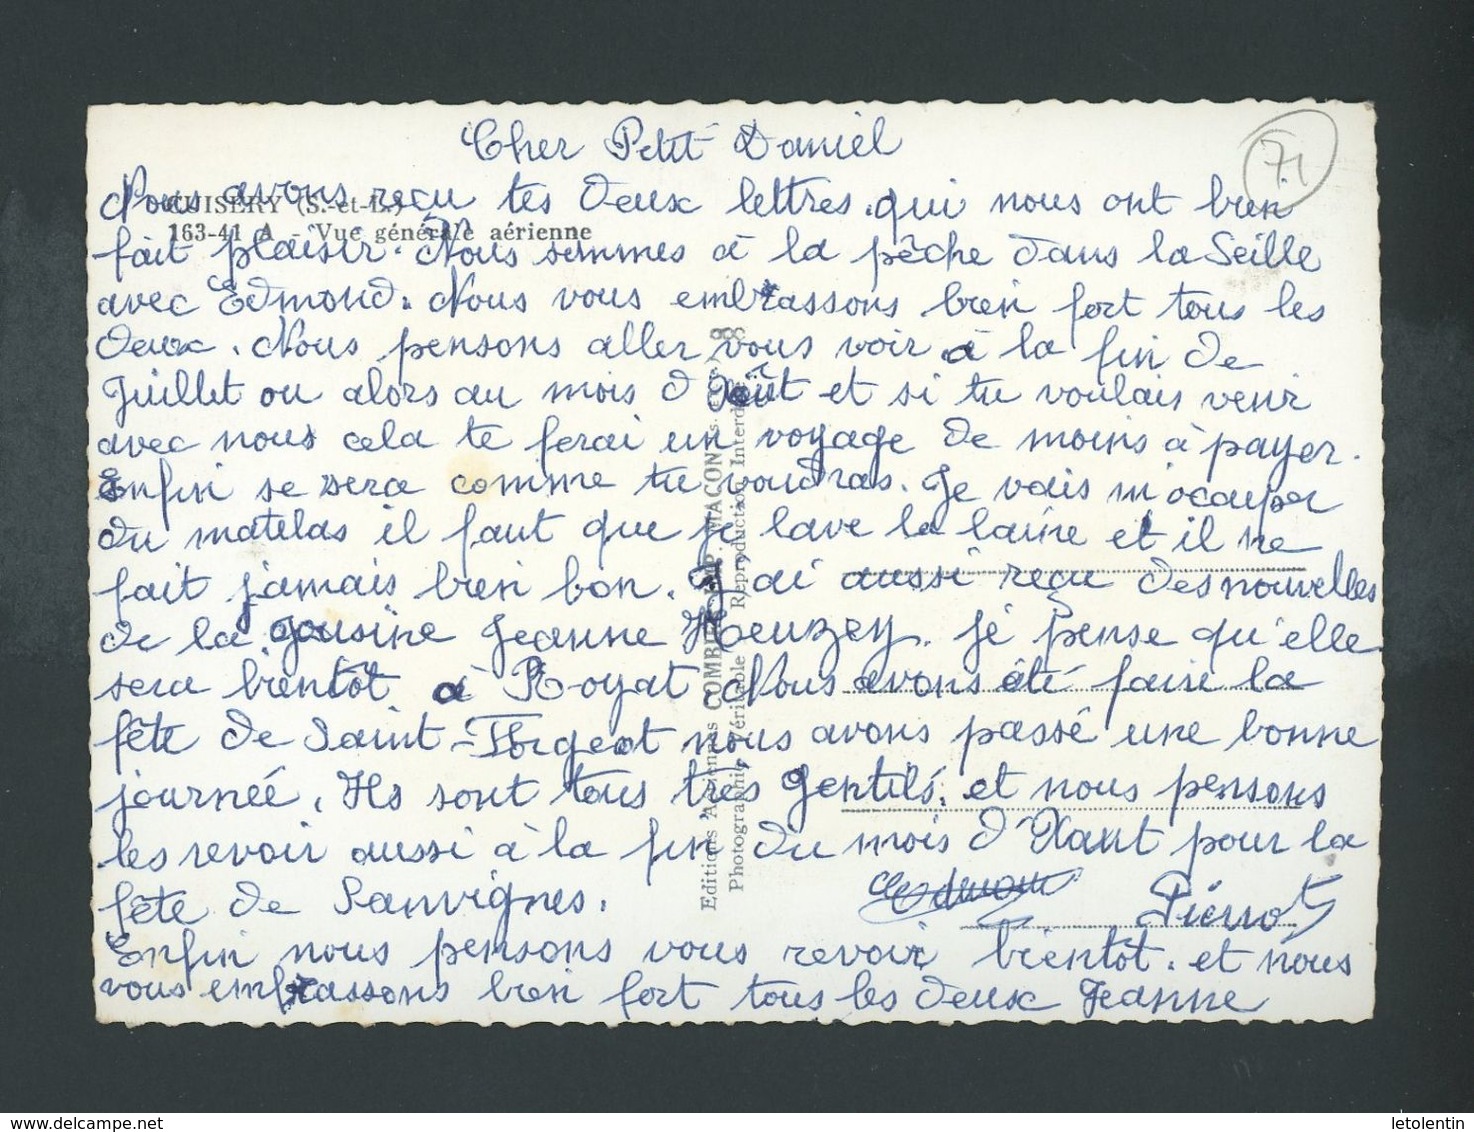 Cher Petit Daniel
71
Nous avons reçu tes deux lettres. qui nous ont bien
CUISERY (S.-et-L.)
163-41 A - Vue générale aérienne
fait plaisir. Nous sommes à la pêche dans la Seille
avec Edmond. Nous vous embrassons bien fort tous les
deux. Nous pensons aller vous voir à la fin de
Juillet ou alors au mois d'Août et si tu voulais venir
avec nous cela te ferai un voyage de moins à payer.
Enfin se sera comme tu voudras. Je vais m'ocauper
du matelas il faut que je lave la laine et il ne
fait jamais bien bon. J'ai aussi reçu des nouvelles
de la cousine Jeanne Heuzey. Je pense qu'elle
sera bientôt à Royat. Nous avons été faire la
fête de Saint-Forgeot nous avons passé une bonne
journée. Ils sont tous très gentils. et nous pensons
les revoir aussi à la fin du mois d'Aaut pour la
fête de Sanvignes.
Pierrot
Enfin nous pensons vous revoir bientôt. et nous
vous embrassons bien fort tous les deux Jeanne
Editions Aériennes COMBIER IMP. MACON
Photographie Véritable Reproduction Interdite
letolentin